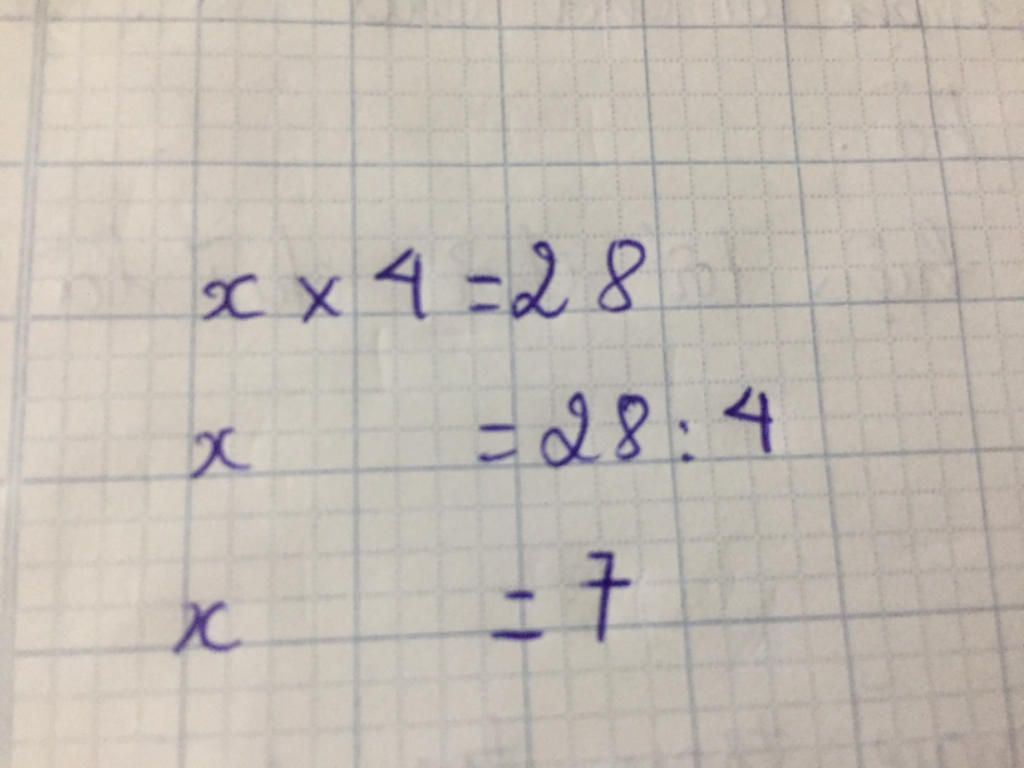 x × 4 = 28
x = 28 : 4
x = 7